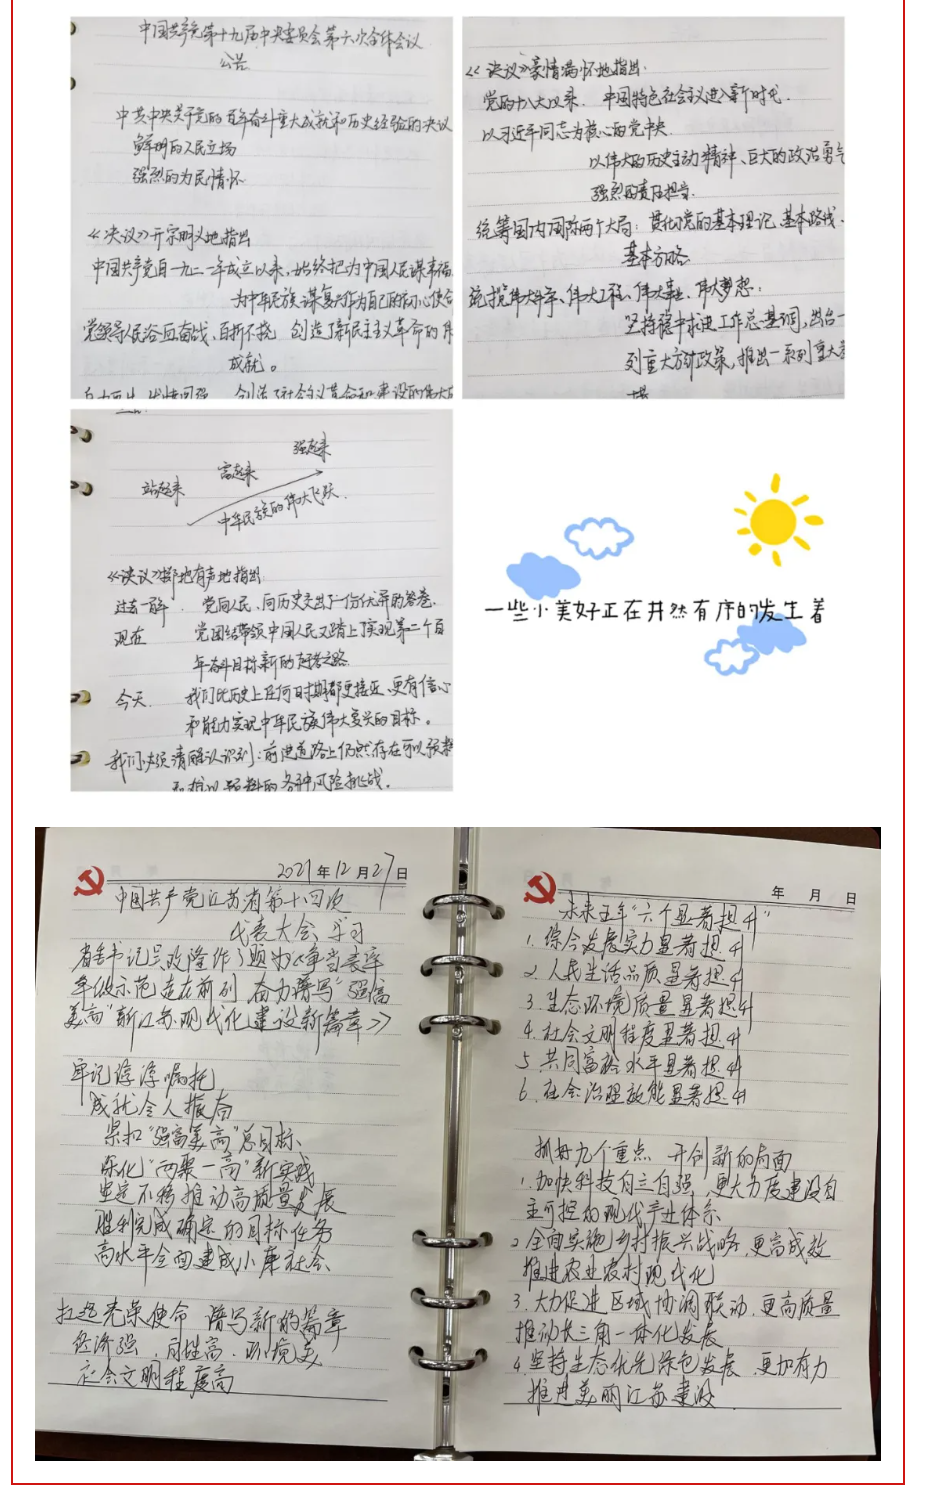 中国共产党第十九届中央委员会第六次全体会议
公告
中共中央关于党的百年奋斗重大成就和历史经验的决议
鲜明的人民立场
强烈的为民情怀
《决议》开宗明义地指出
中国共产党自一九二一年成立以来,始终把为中国人民谋幸福
为中华民族谋复兴作为自己的初心使命
党领导人民浴血奋战、百折不挠 创造了新民主主义革命的伟
成就。
自力更生、发愤图强 创造了社会主义革命和建设的伟大成
《决议》豪情满怀地指出:
党的十八大以来. 中国特色社会主义进入新时代.
以习近平同志为核心的党中央.
以伟大的历史主动精神、巨大的政治勇气
强烈的责任担当.
统筹国内国际两个大局: 贯彻党的基本理论、基本路线、
基本方略.
统揽伟大斗争、伟大工程、伟大事业、伟大梦想:
坚持稳中求进工作总基调,出台一
列重大方针政策,推出一系列重大举
强起来
富起来
站起来
中华民族的伟大飞跃.
《决议》掷地有声地指出:
过去一百年. 党向人民、向历史交出了一份优异的答卷.
现在 党团结带领中国人民又踏上了实现第二个百
年奋斗目标新的赶考之路.
今天. 我们比历史上任何时期都更接近、更有信心
和能力实现中华民族伟大复兴的目标。
我们必须清醒认识到:前进道路上仍然存在可以预料
和难以预料的各种风险挑战.
一些小美好正在井然有序的发生着
2021年12月27日
中国共产党江苏省第十四次
代表大会 学习
省委书记吴政隆作了题为《争当表率
争做示范走在前列 奋力谱写"强富
美高"新江苏现代化建设新篇章》
牢记谆谆嘱托
成就令人振奋
紧扣"强富美高"总目标
深化"两聚一高"新实践
坚定不移推动高质量发展
胜利完成确定的目标任务
高水平全面建成小康社会
扛起光荣使命 谱写新的篇章
经济强.百姓富.环境美
社会文明程度高
年 月 日
未来五年"六个显著提升"
1.综合发展实力显著提升
2.人民生活品质显著提升
3.生态环境质量显著提升
4.社会文明程度显著提升
5.共同富裕水平显著提升
6.社会治理效能显著提升
抓好九个重点 开创新的局面
1.加快科技自立自强.更大力度建设自
主可控的现代产业体系
2.全面实施乡村振兴战略.更高成效
推进农业农村现代化
3.大力促进区域协调联动.更高质量
推动长三角一体化发展
4.坚持生态优先绿色发展.更加有力
推进美丽江苏建设